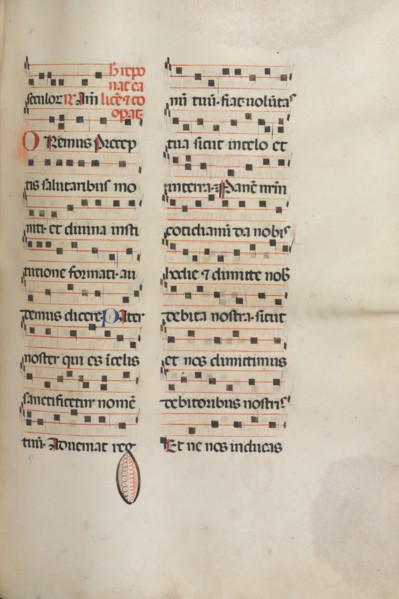 hic repo
nat ca
seculor R Am licē & co
opat.
Oremus Precep
tis salutaribus mo
niti· et diuina insti
tutione formati· au
demus dicere. Pater
noster qui es ī celis
sanctificetur nomē
tuū· Adueniat reg
nū tuū· fiat uolūtas
tua sicut in celo et
in terra· Panē nr̄m
cotidianū da nobis
hodie ⁊ dimitte nob
debita nostra· sicut
et nos dimitimus
debitoribus nostris
Et ne nos inducas